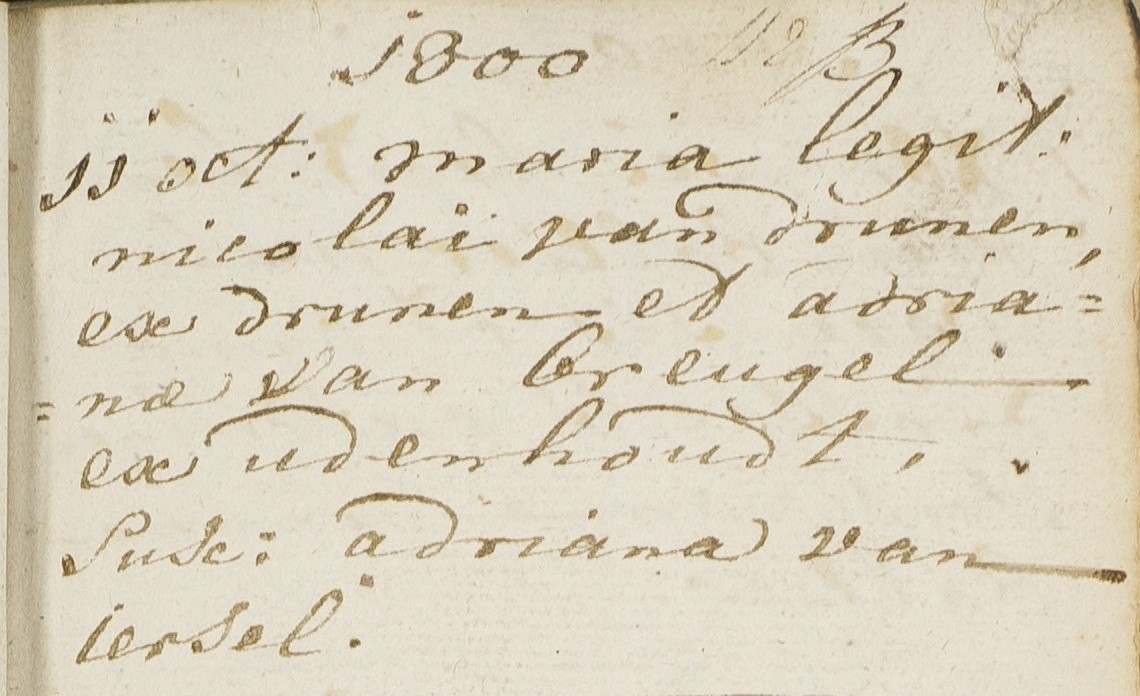 1800
jj oct: maria legit:
nicolai van drunen,
ex drunen et adria=
=næ van breugel
ex udenhoudt,
Susc: adriana van
iersel.